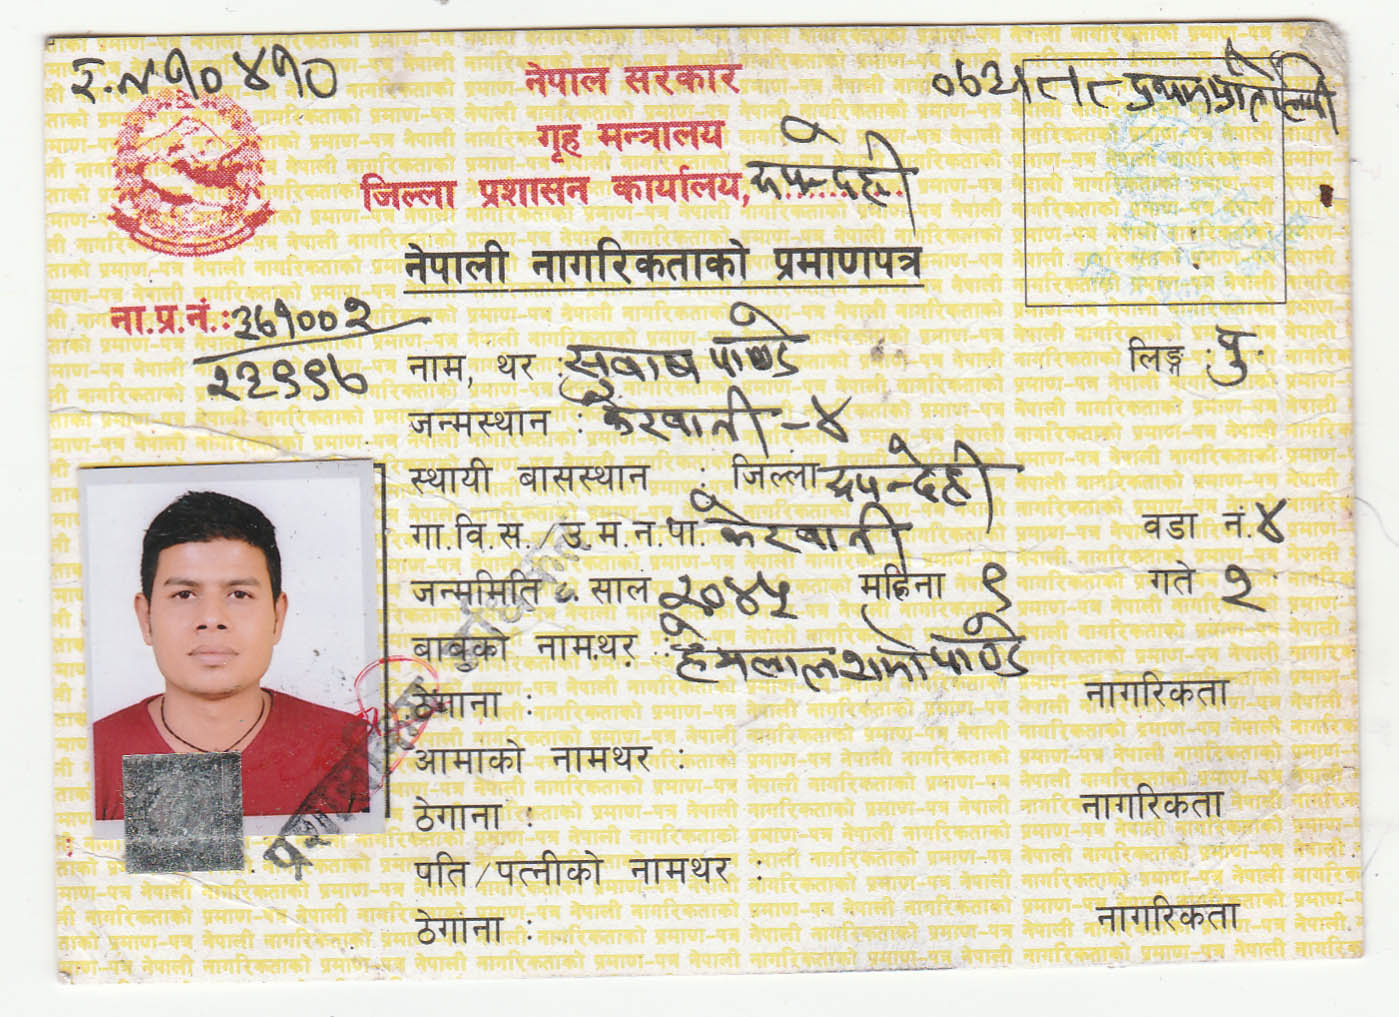 नेपाल सरकार
गृह मन्त्रालय
जिल्ला प्रशासन कार्यालय, रुपन्देही
नेपाली नागरिकताको प्रमाणपत्र
ना.प्र.नं.:
नाम, थर : सुवाष पाण्डे लिङ्ग : पु.
जन्मस्थान : केरवानी - ४
स्थायी बासस्थान : जिल्ला रुपन्देही
गा.वि.स./उ.म.न.पा. केरवानी वडा नं. ४
जन्ममिति : साल २०४५ महिना ९ गते २
बाबुको नामथर : हेमलाल शर्मा पाण्डे
ठेगाना : नागरिकता
आमाको नामथर :
ठेगाना : नागरिकता
पति/पत्नीको नामथर :
ठेगाना : नागरिकता